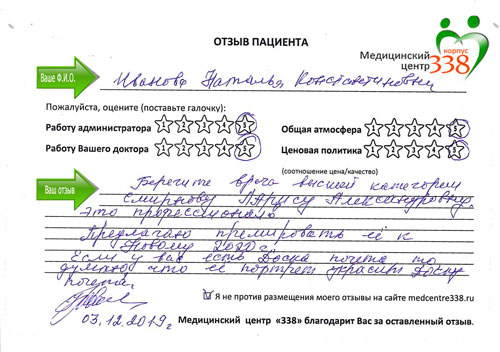 ОТЗЫВ ПАЦИЕНТА
корпус
Медицинский
центр 338
Ваше Ф.И.О.
Иванова Наталья Константиновна
Пожалуйста, оцените (поставьте галочку):
Работу администратора 1 2 3 4 5
Общая атмосфера 1 2 3 4 5
Работу Вашего доктора 1 2 3 4 5
Ценовая политика 1 2 3 4 5
(соотношение цена/качество)
Ваш отзыв
Берегите врача высшей категории
Смирнову Ларису Александровну.
Это профессионал
Предлагаю премировать её к
Новому 2020 г.
Если у вас есть Доска почета то
думаю что её портрет украсит Доску
почета.
03.12.2019г.
Я не против размещения моего отзывы на сайте medcentre338.ru
Медицинский центр «338» благодарит Вас за оставленный отзыв.